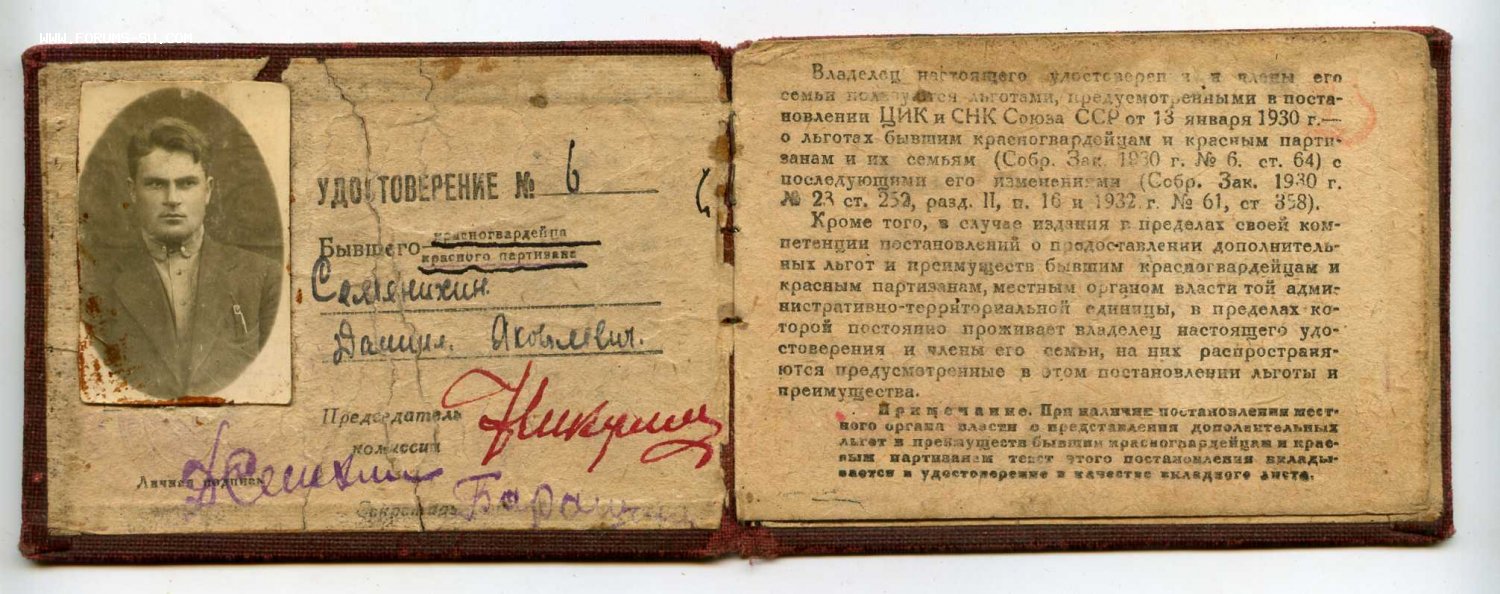 WWW.FORUMS-SU.COM
УДОСТОВЕРЕНИЕ № 6
Бывшего красногвардейца
красного партизана
Семянихин
Даниил Яковлевич.
Председатель
комиссии
Личная подпись
Секретарь
Владелец настоящего удостоверения и члены его
семьи пользуются льготами, предусмотренными в поста-
новлении ЦИК и СНК Союза ССР от 13 января 1930 г.—
о льготах бывшим красногвардейцам и красным парти-
занам и их семьям (Собр. Зак. 1930 г. № 6. ст. 64) с
последующими его изменениями (Собр. Зак. 1930 г.
№ 23 ст. 252, разд. II, п. 16 и 1932 г. № 61, ст 358).
Кроме того, в случае издания в пределах своей ком-
петенции постановлений о предоставлении дополнитель-
ных льгот и преимуществ бывшим красногвардейцам и
красным партизанам, местным органом власти той адми-
нистративно-территориальной единицы, в пределах ко-
торой постоянно проживает владелец настоящего удо-
стоверения и члены его семьи, на них распространя-
ются предусмотренные в этом постановлении льготы и
преимущества.
Примечание. При наличие постановления мест-
ного органа власти о представления дополнительных
льгот и преимуществ бывшим красногвардейцам и крас-
ным партизанам текст этого постановления вклады-
вается в удостоверение в качестве вкладного листа.